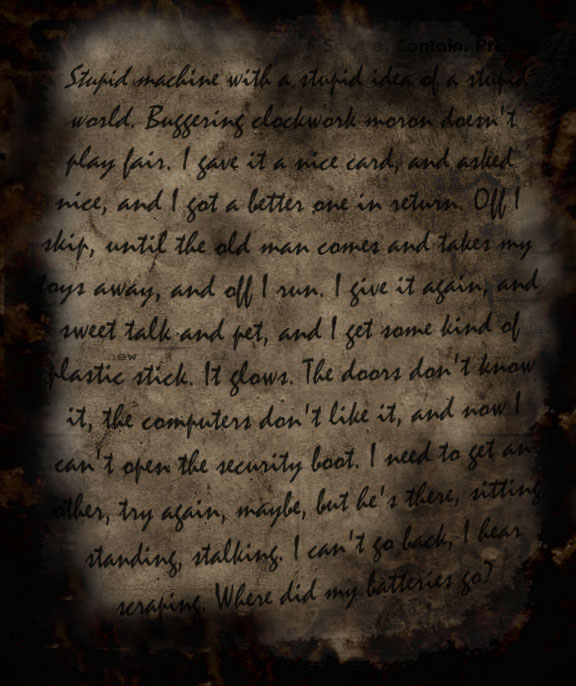 Secure. Contain. Pro
Stupid machine with a stupid idea of a stupid
world. Buggering clockwork moron doesn't
play fair. I gave it a nice card, and asked
nice, and I got a better one in return. Off I
skip, until the old man comes and takes my
toys away, and off I run. I give it again, and
sweet talk and pet, and I get some kind of
plastic stick. It glows. The doors don't know
new
it, the computers don't like it, and now I
can't open the security boot. I need to get an-
other, try again, maybe, but he's there, sitting,
standing, stalking. I can't go back, I hear
scraping. Where did my batteries go?